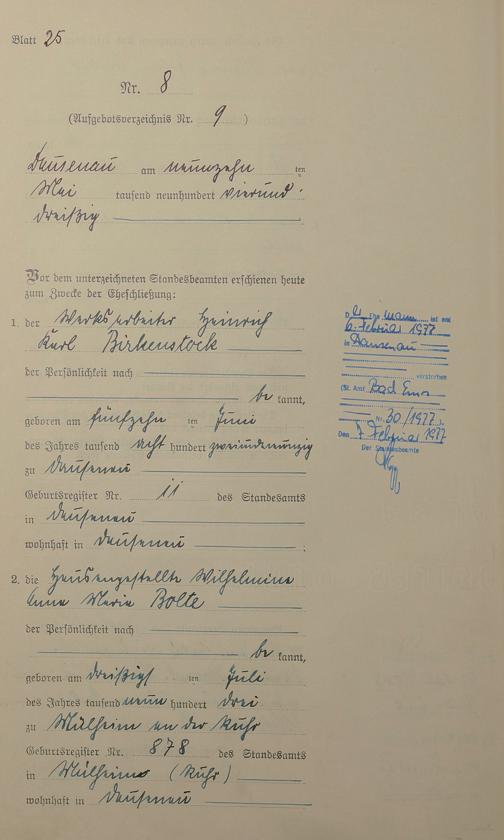 Blatt 25
Nr. 8
(Aufgebotsverzeichnis Nr. 9 )
Dausenau am neunzehn ten
Mai tausend neunhundert vierund-
dreißig
Vor dem unterzeichneten Standesbeamten erschienen heute
zum Zwecke der Eheschließung:
1. der Werksarbeiter Heinrich
Karl Birkenstock
der Persönlichkeit nach
be kannt,
geboren am fünfzehn ten Juni
des Jahres tausend acht hundert zweiundneunzig
zu Dausenau
Geburtsregister Nr. 11 des Standesamts
in Dausenau
wohnhaft in Dausenau ;
2. die Hausangestellte Wilhelmine
Anna Maria Bolte
der Persönlichkeit nach
be kannt,
geboren am dreißigst ten Juli
des Jahres tausend neun hundert drei
zu Mülheim an der Ruhr
Geburtsregister Nr. 878 des Standesamts
in Mülheim (Ruhr)
wohnhaft in Dausenau
D er Ehemann ist am
6. Februar 1977
in Dausenau
verstorben
(St. Amt Bad Ems
Nr. 30/1977).
Den 7. Februar 1977
Der Standesbeamte